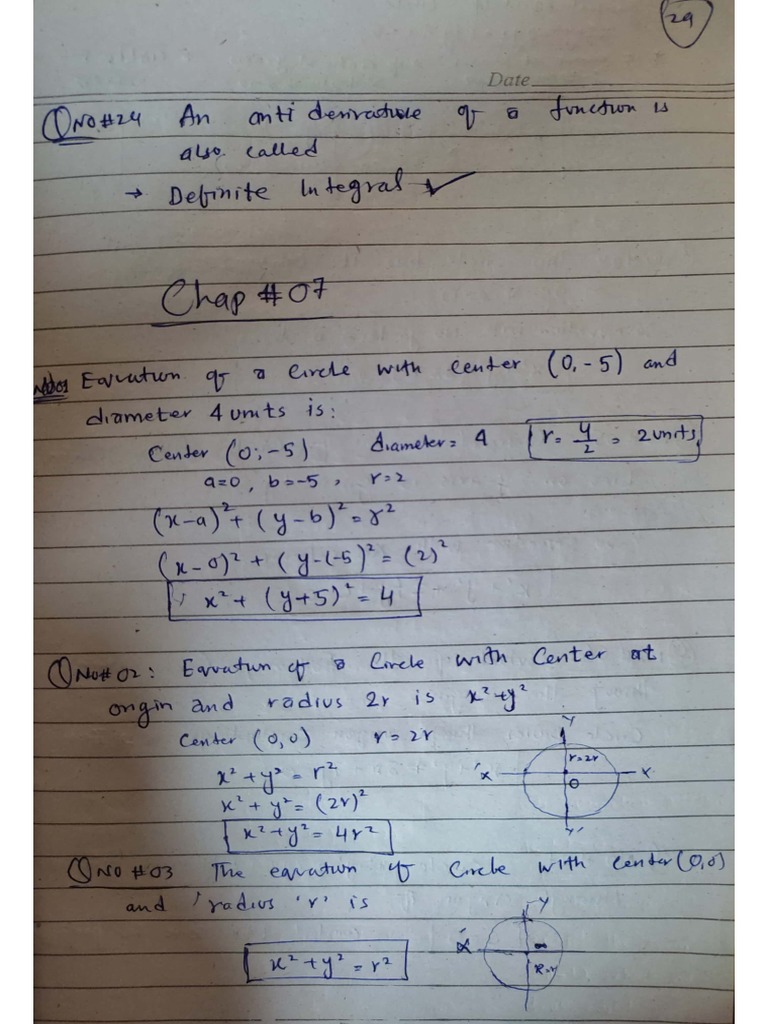 29
Date
QNO#24 An anti derivative of a function is
also called
→ Definite Integral ✓
Chap #07
Equation of a Circle with center (0,-5) and
diameter 4 units is:
Center (0,-5) diameter= 4 r= 4/2 = 2units
a=0, b=-5, r=2
(x-a)²+(y-b)²=r²
(x-0)²+(y-(-5)²=(2)²
x²+(y+5)²=4
QNo#02: Equation of a Circle with Center at
origin and radius 2r is x²+y²
Center (0,0) r=2r
Y
r=2r
x²+y²=r²
'X X
O
x²+y²=(2r)²
x²+y²=4r²
Y'
QNO #03 The equation of Circle with center(0,0)
and radius 'r' is
Y
x²+y²=r²